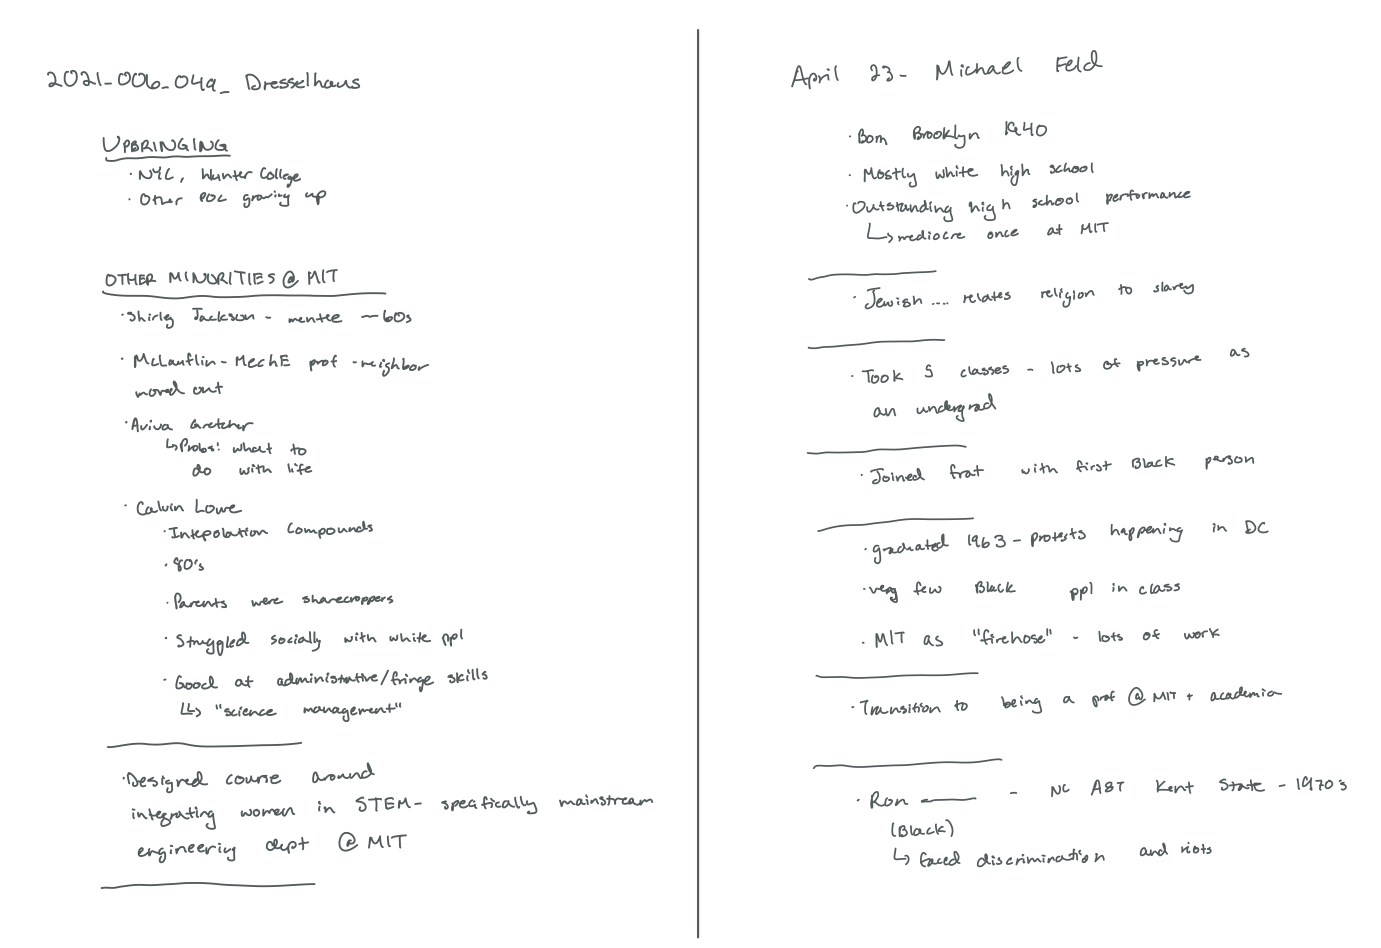 2021_006_049_ Dresselhaus
UPBRINGING
· NYC, Hunter College
· Other POC growing up
OTHER MINORITIES @ MIT
· Shirley Jackson - mentee ~60s
· McLauflin - MechE prof - neighbor
moved out
· Aviva
↳ Probs: what to
do with life
· Calvin Lowe
· Intepolation Compounds
· 80's
· Parents were sharecroppers
· Struggled socially with white ppl
· Good at administrative/fringe skills
↳ "science management"
· Designed course around
integrating women in STEM - specifically mainstream
engineering dept @ MIT
April 23 - Michael Feld
· Born Brooklyn 1940
· Mostly white high school
· Outstanding high school performance
↳ mediocre once at MIT
· Jewish .... relates religion to slavery
· Took 5 classes - lots of pressure as
an undergrad
· Joined frat with first Black person
· graduated 1963 - Protests happening in DC
· very few Black ppl in class
· MIT as "firehose" - lots of work
· Transition to being a prof @ MIT + academia
· Ron —— - NC A&T Kent State - 1970's
(Black)
↳ faced discrimination and riots